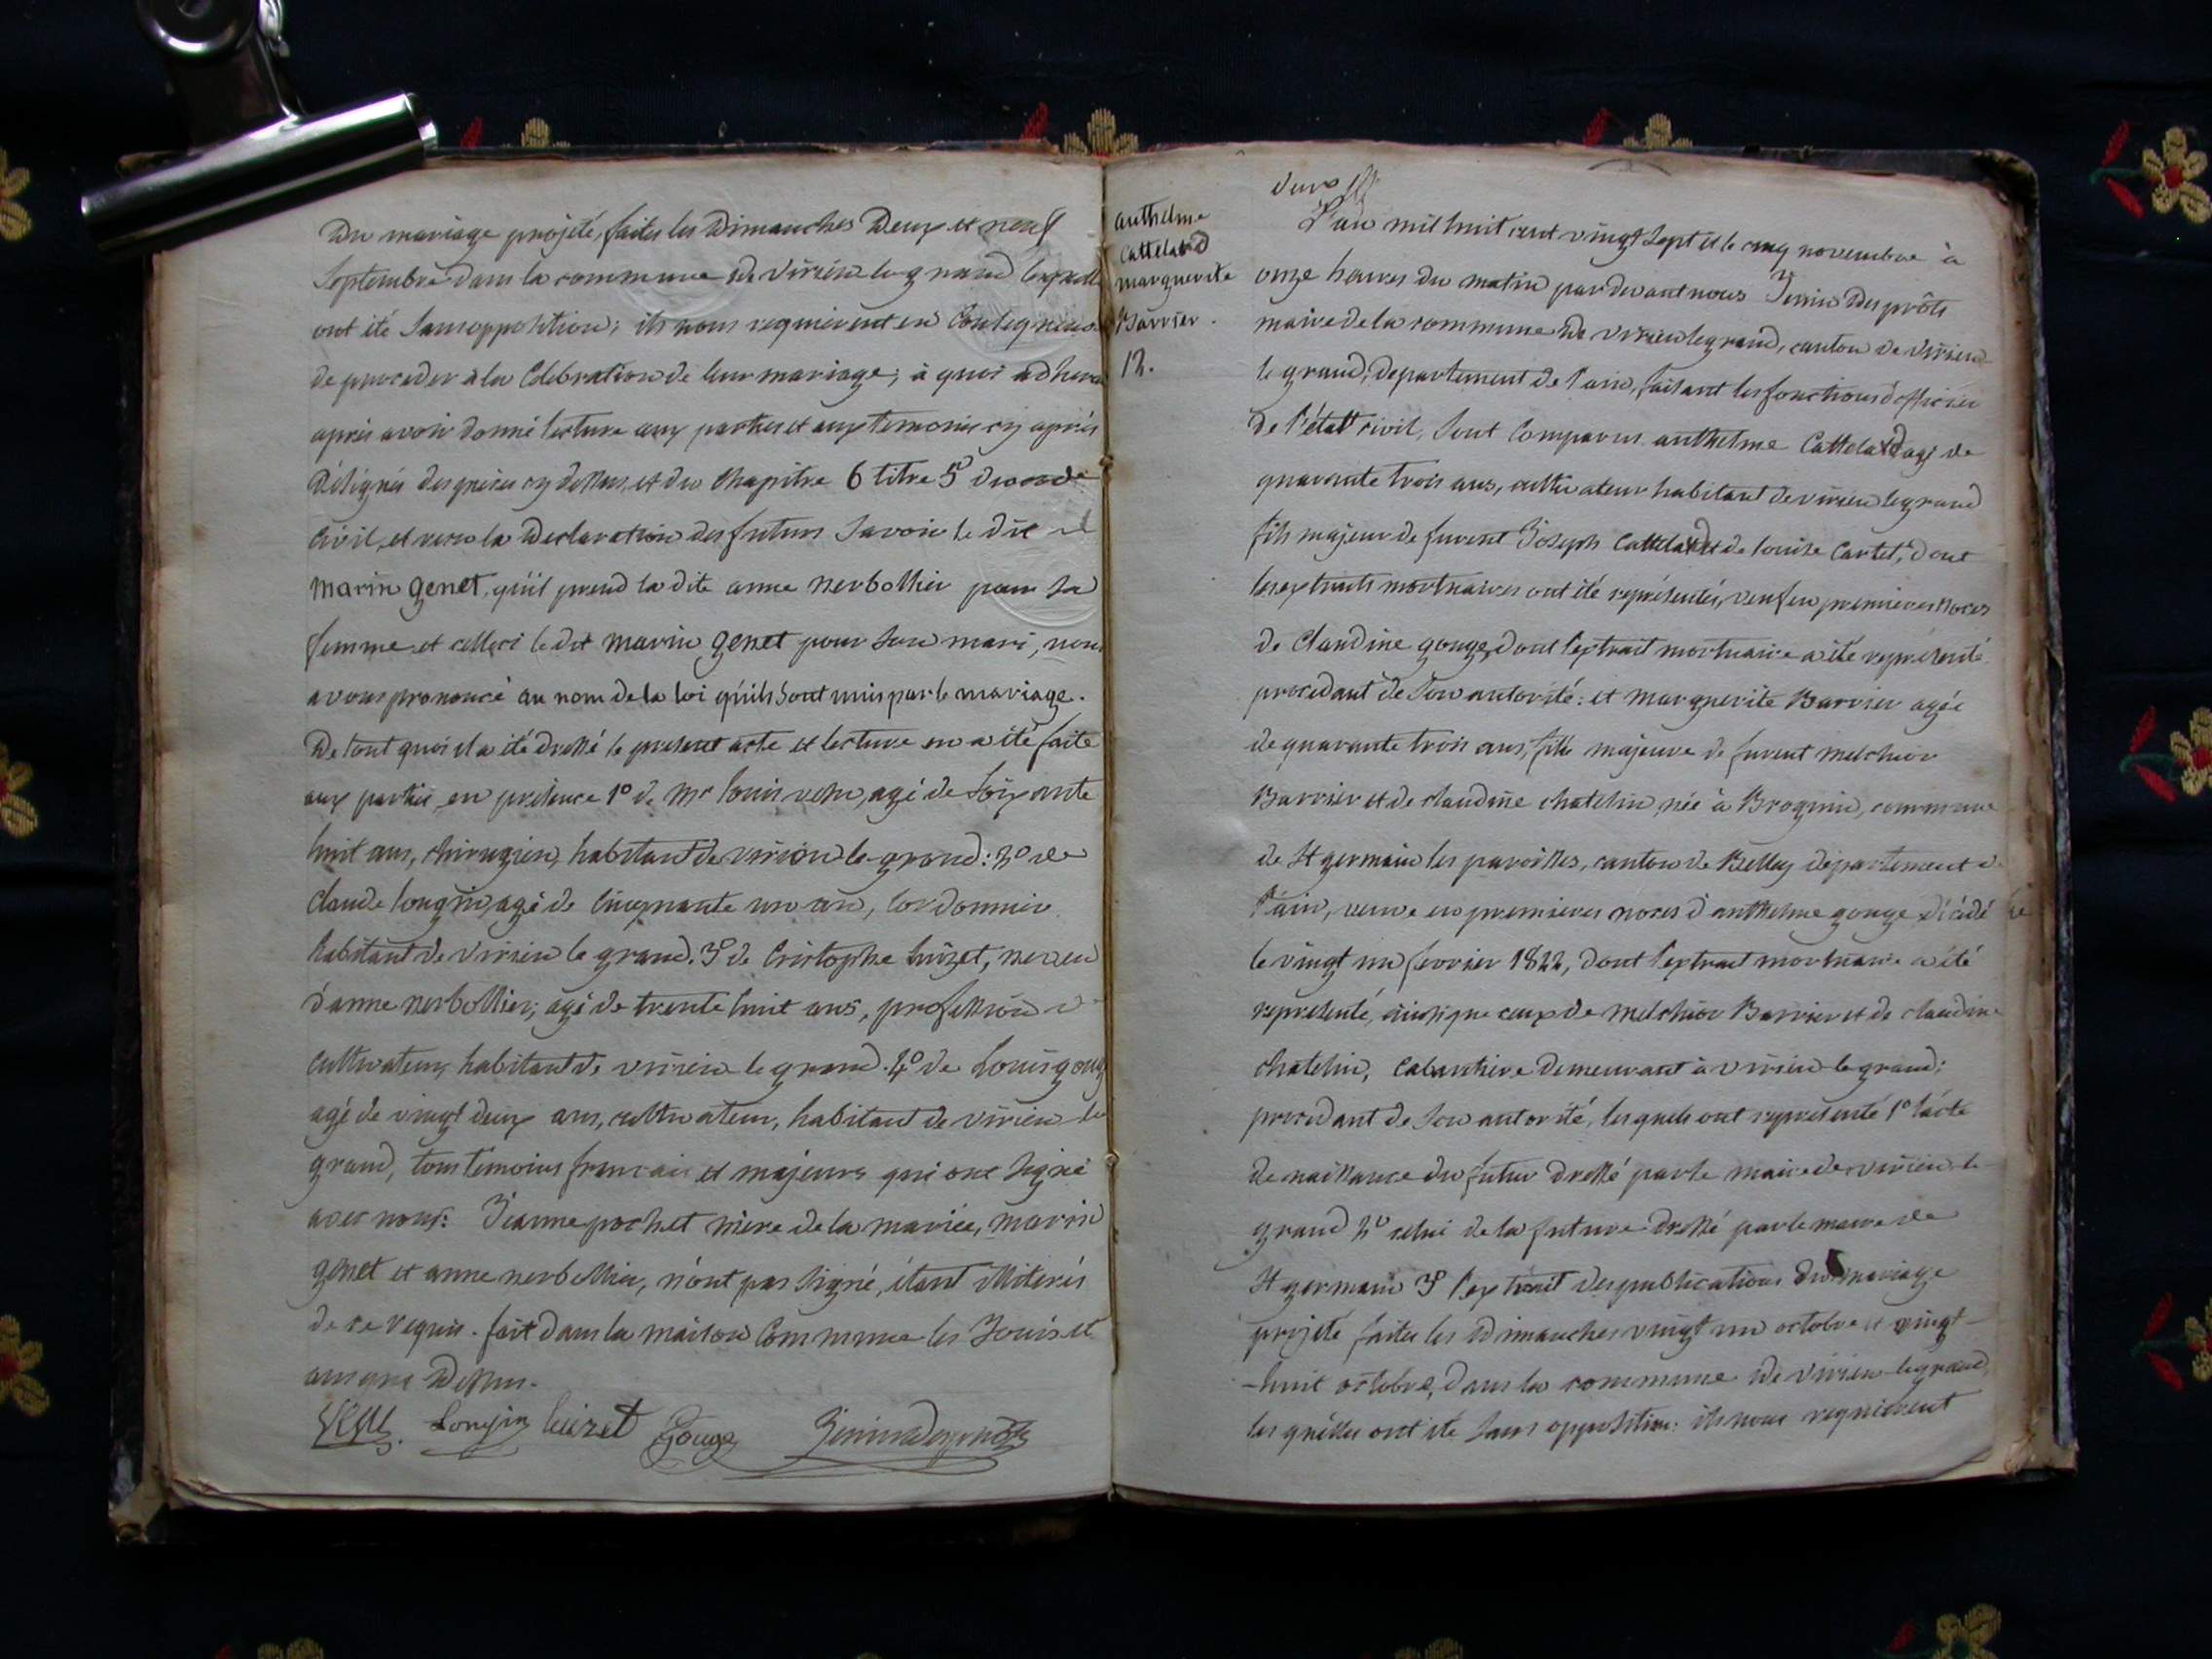 Du mariage projeté, faites les Dimanches Deux et neuf
Septembre dans la commune de virieu le grand lesquelles
ont été sans opposition; ils nous requierent en Conséquence
de proceder à la Célébration de leur mariage; à quoi adherant
après avoir donné lecture aux parties et aux temoins cy après
Désignés des pieces cy dessus, et du Chapitre 6 titre 5 du code
civil, et reçu la Declaration des futurs Savoir le dit
marin genet, qu'il prend la dite anne nerbollier pour sa
femme et celle ci le dit marin genet pour son mari, nous
avons prononcé au nom de la loi qu'ils sont unis par le mariage.
De tout quoi il a été dressé le present acte et lecture en a été faite
aux parties en présence 1º de Mr louis vem, agé de Soixante
huit ans, chirurgien, habitant de virieu le grand: 2º de
Claude longin, agé de Cinquante un ans, Cordonnier
habitant de virieu le grand. 3º de Cristophe luizet, neveu
d'anne nerbollier; agé de trente huit ans, profession de
cultivateur, habitant de virieu le grand. 4º de Louis gouge
agé de vingt deux ans, cultivateur, habitant de virieu le
grand, tous témoins francais et majeurs qui ont signé
avec nous: Jeanne pochet mere de la mariée, marin
genet et anne nerbollier, n'ont pas signé, étant illiterés
de ce requis. fait dans la maison Commune les Jours et
ans que Dessus.
Longin luizet Gouge
anthelme
Cattelard
marguerite
Barrier.
12.
L'an mil huit cent vingt sept et le cinq novembre à
onze heures du matin par devant nous Jenin Desprôts
maire de la commune de virieu le grand, canton de virieu
le grand, departement de l'ain, faisant les fonctions d'officier
de l'état civil, Sont Comparus anthelme Cattelard agé de
quarante trois ans, cultivateur habitant de virieu le grand
fils majeur de furent Joseph Cattelard et de louise Cartet, dont
les extraits mortuaires ont été représentés, veuf en premieres noces
de Claudine gouge, dont l'extrait mortuaire a été représenté
procedant de son autorité: et marguerite Barrier agée
de quarante trois ans, fille majeure de furent melchior
Barrier et de claudine chatelin, née à Brognin, commune
de St germain les paroisses, canton de Belley département de
l'ain, veuve en premieres noces d'anthelme gouge décédé
le vingt un fevrier 1822, dont l'extrait mortuaire a été
representé, ainsi que ceux de melchior Barrier et de claudine
chatelin, Cabaretiere demeurant à virieu le grand;
procedant de son autorité, les quels ont représenté 1º l'acte
de naissance du futur dressé par le maire de virieu le
grand 2º celui de la future dressé par le maire de
St germain 3º l'extrait des publications du mariage
projeté faites les dimanches vingt un octobre et vingt-
-huit octobre, dans la commune de virieu le grand
les quelles ont été sans opposition: ils nous requierent